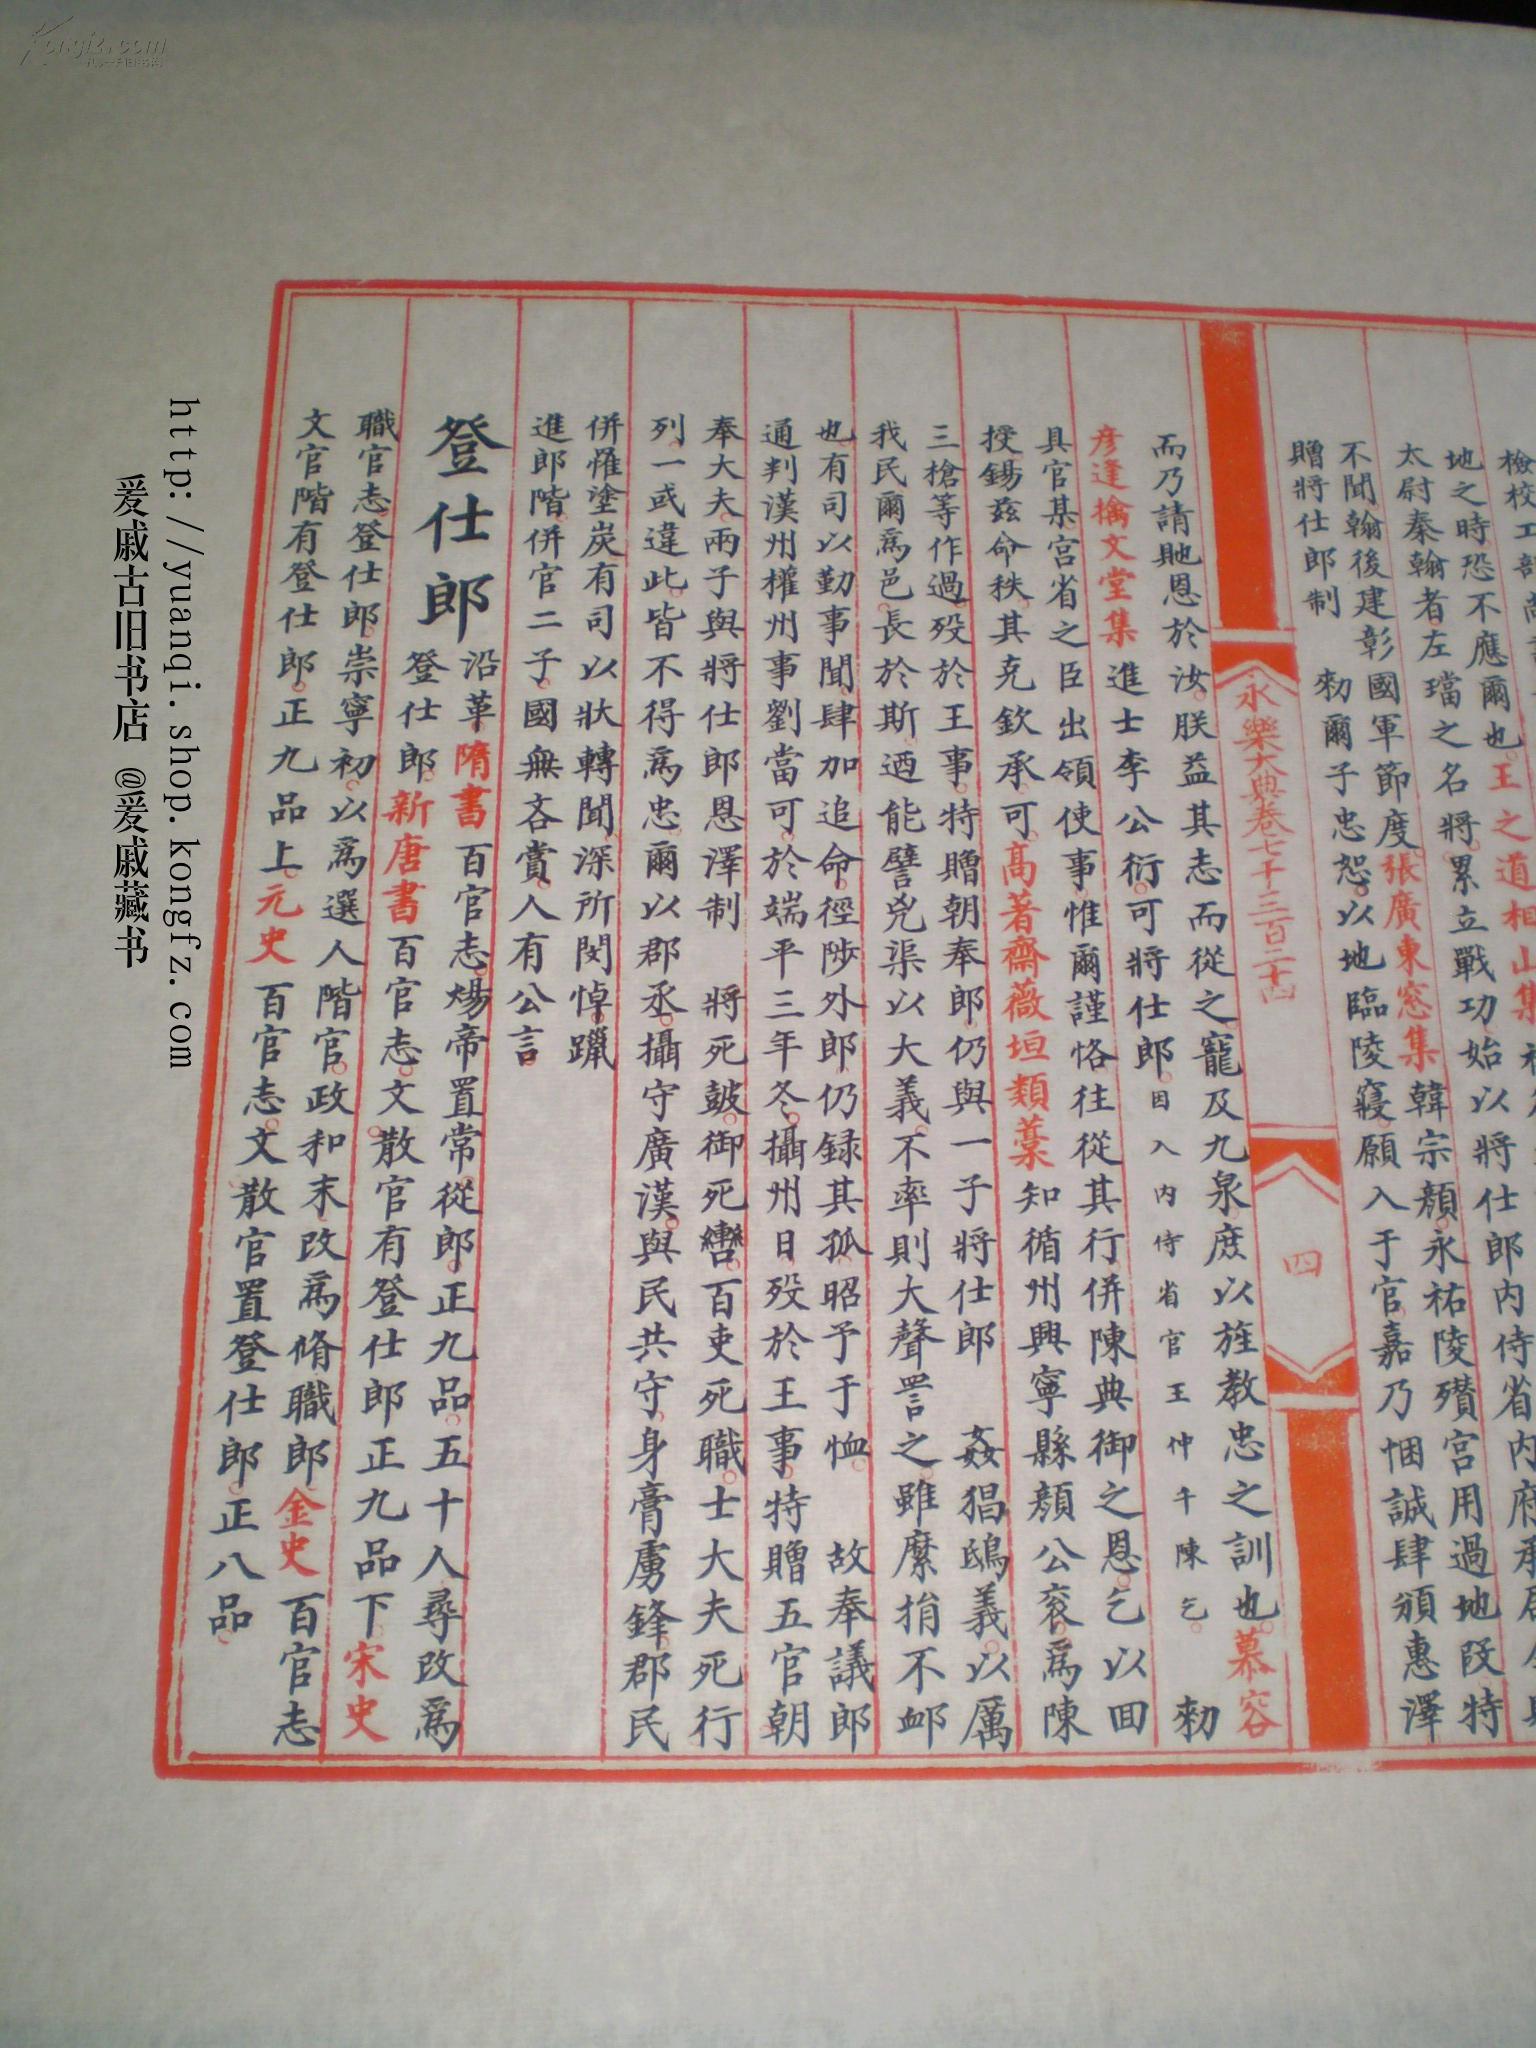 檢校工部尚書
地之時恐不應爾也王之道相山集
太尉秦翰者左璫之名將累立戰功始以將仕郎内侍省内府承
不聞翰後建彰國軍節度張廣東窓集韓宗顏永祐陵殯宮用過地段特
贈將仕郎制 勑爾子忠恕以地臨陵寢願入于官嘉乃悃誠肆頒惠澤
永樂大典卷七千三百二十四
四
而乃請貤恩於汝朕益其志而從之寵及九泉庶以旌教忠之訓也慕容
彦逢摛文堂集進士李公衍可將仕郎因入内侍省官王仲千陳乞 勑
具官某宮省之臣出領使事惟爾謹恪往從其行併陳典御之恩乞以回
授錫茲命秩其克欽承可高耆齋薇垣類藁知循州興寧縣顏公衮爲陳
三槍等作過歿於王事特贈朝奉郎仍與一子將仕郎 姦猖鴟義以厲
我民爾爲邑長於斯迺能譬兇渠以大義不率則大聲詈之雖縻捐不䘏
也有司以勤事聞肆加追命徑陟外郎仍録其孤昭予于恤 故奉議郎
通判漢州權州事劉當可於端平三年冬攝州日歿於王事特贈五官朝
奉大夫兩子與將仕郎恩澤制 將死鼓御死轡百吏死職士大夫死行
列一或違此皆不得爲忠爾以郡丞攝守廣漢與民共守身膏虜鋒郡民
併罹塗炭有司以狀轉聞深所閔悼躐
進郎階併官二子國無吝賞人有公言
登仕郎
沿革隋書百官志煬帝置常從郎正九品五十人尋改爲
登仕郎新唐書百官志文散官有登仕郎正九品下宋史
職官志登仕郎崇寧初以爲選人階官政和末改爲脩職郎金史百官志
文官階有登仕郎正九品上元史百官志文散官置登仕郎正八品
http://yuanqi.shop.kongfz.com
爰戚古旧书店 @爰戚藏书